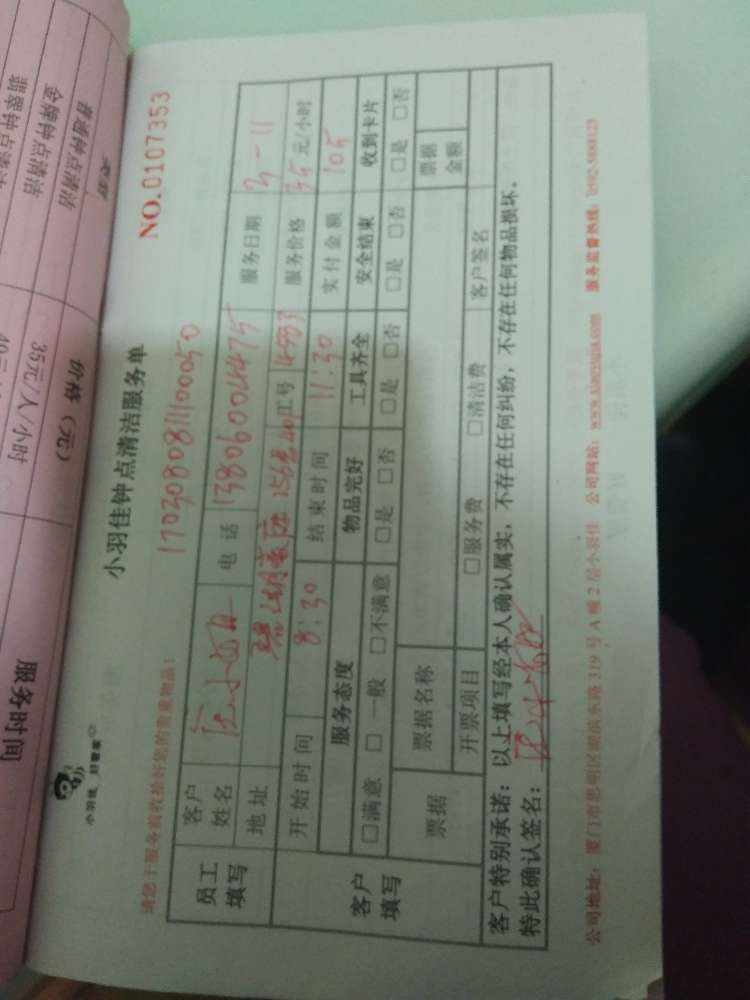 小羽佳 好管家
小羽佳钟点清洁服务单
NO.0107353
请您于服务前收拾好您的贵重物品:
17030808111100050
员工填写
客户姓名
电话 13806004475
服务日期 3-11
地址
工号
服务价格 35元/小时
客户填写
开始时间 8:30
结束时间 11:30
实付金额 105
服务态度 物品完好 工具齐全 安全结束 收到卡片
□满意 □一般 □不满意 □是 □否 □是 □否 □是 □否 □是 □否
票据 票据名称 票据金额
开票项目 □服务费 □清洁费 客户签名
客户特别承诺: 以上填写经本人确认属实, 不存在任何纠纷, 不存在任何物品损坏。
特此确认签名:
公司地址: 厦门市思明区湖滨东路319号A幢2层小羽佳 公司网站: www.xiaoyujia.com 服务监督热线: 0592-5068123
类别
价格(元)
服务时间
普通钟点清洁 35元/人/小时
金牌钟点清洁
翡翠钟点清洁